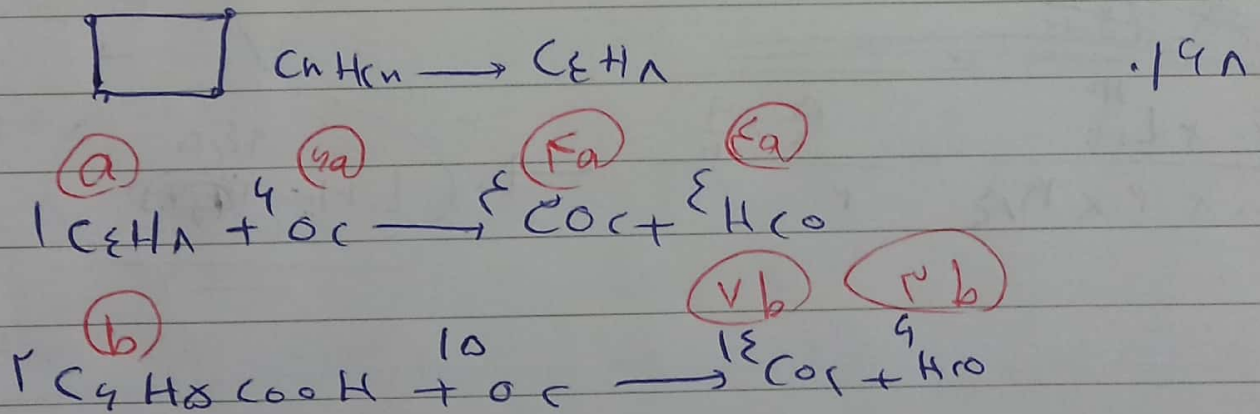 CnH۲n → C۴H۸ ۰/۶۸
a ۶a ۴a ۴a
۱ C۴H۸ + ۶ O۲ → ۴ CO۲ + ۴ H۲O
b ۷b ۳b
۲ C۶H۵COOH + ۱۵ O۲ → ۱۴ CO۲ + ۶ H۲O